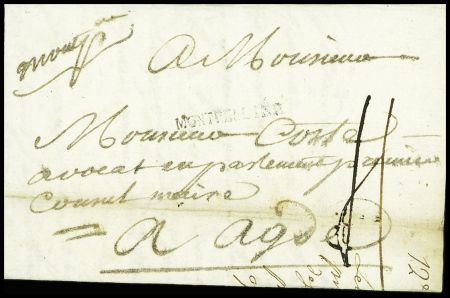 A Monsieur
MONTPELLIER
Monsieur Coste
avocat en parlement premier
Consul maire
a agde